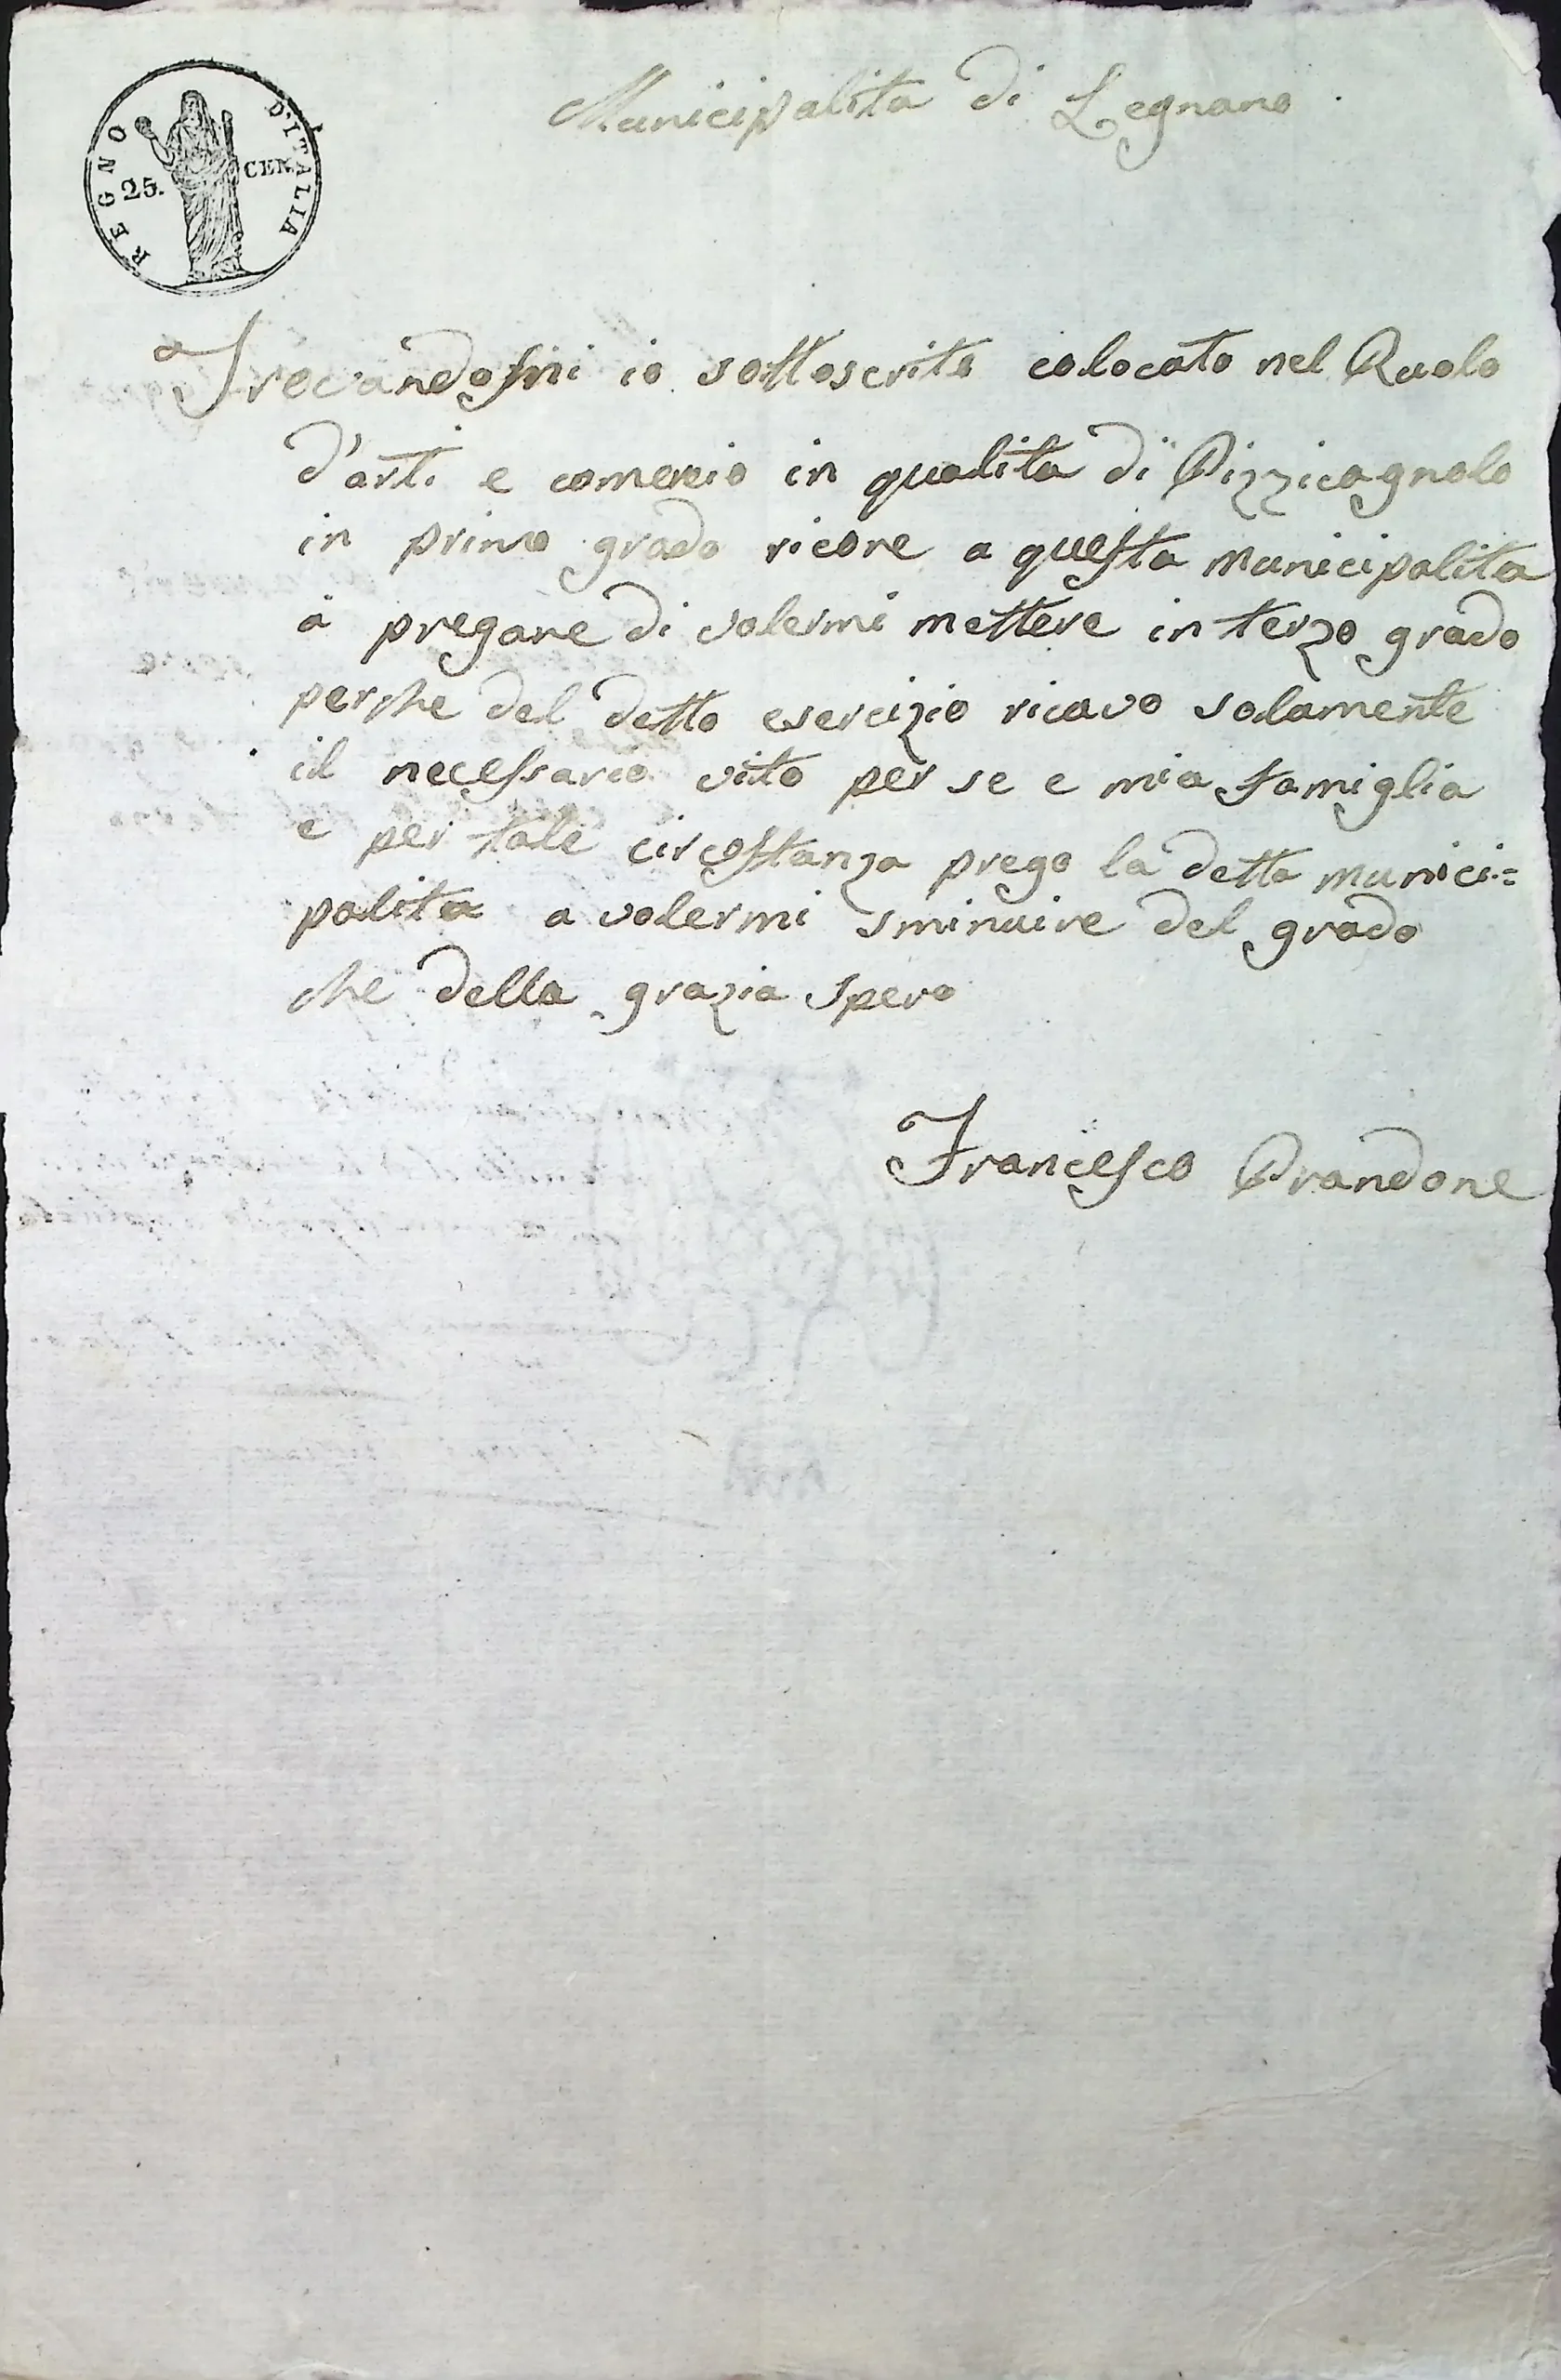 REGNO D'ITALIA
25. CEN
Municipalita di Legnano
Trovandosmi io sottoscrito colocato nel Ruolo
d'arti e comercio in qualita di Pizzicagnolo
in primo grado ricore a questa Municipalita
a pregare di volermi mettere in terzo grado
perche del detto esercizio ricavo solamente
il necessario vito per se e mia famiglia
e per tale circostanza prego la detta Munici=
palita a volermi sminuire del grado
che della grazia spero
Francesco Prandone